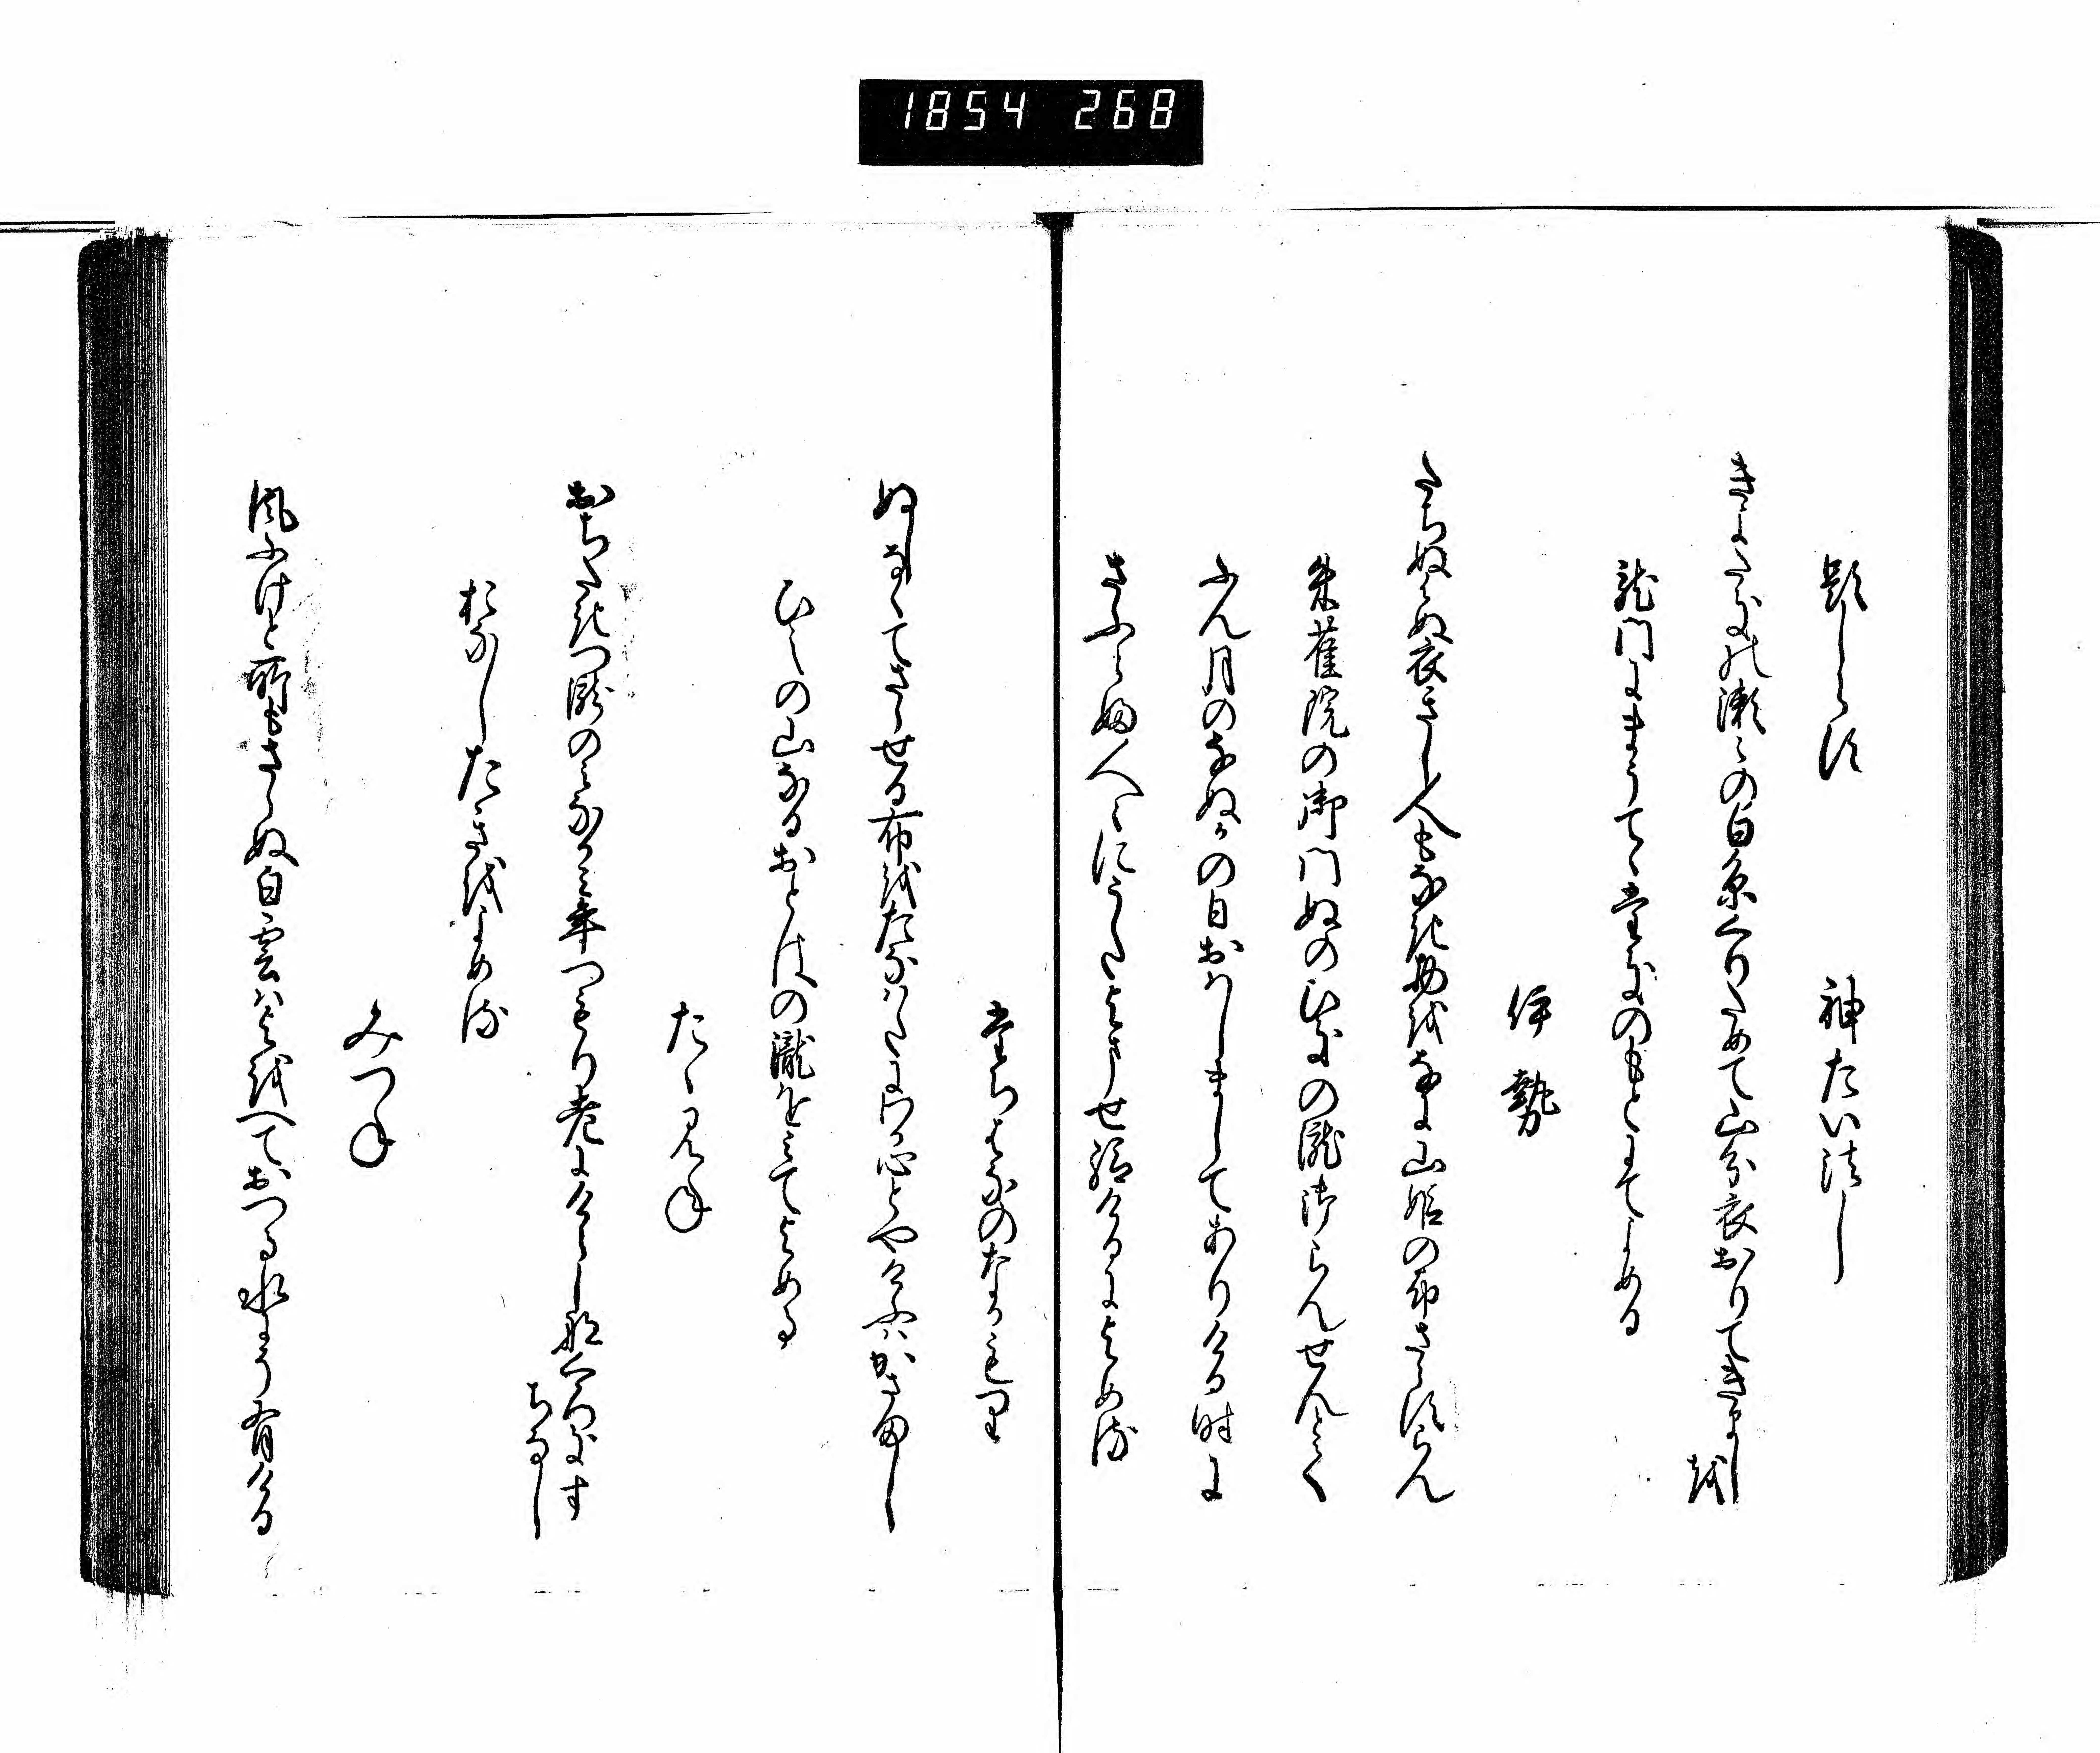 1854 268
題しらす　　神たい法し
きよたきの瀬々の白糸くりためて山分衣おりてきまし
を
龍門にまうてゝたきのもとにてよめる
伊勢
たちぬはぬ衣きし人もなき物をなに山姫の布さらすらん
朱雀院の御門ぬのひきの瀧御らんせんとて
ふん月のなぬかの日おはしましてありける時に
さふらふ人々にうたよませ給けるによめる
たちはなのなかもり
ぬしなくてさらせる布をたなはたにわか心とやけふはかさまし
ひえの山なるおとはの瀧をみてよめる
たゝみね
おちたきつ瀧のみなかみ年つもり老にけらしなくろきす
ちなし
おなしたきをよめる
みつね
風ふけと所もさらぬ白雲はよをへておつる水にそ有ける